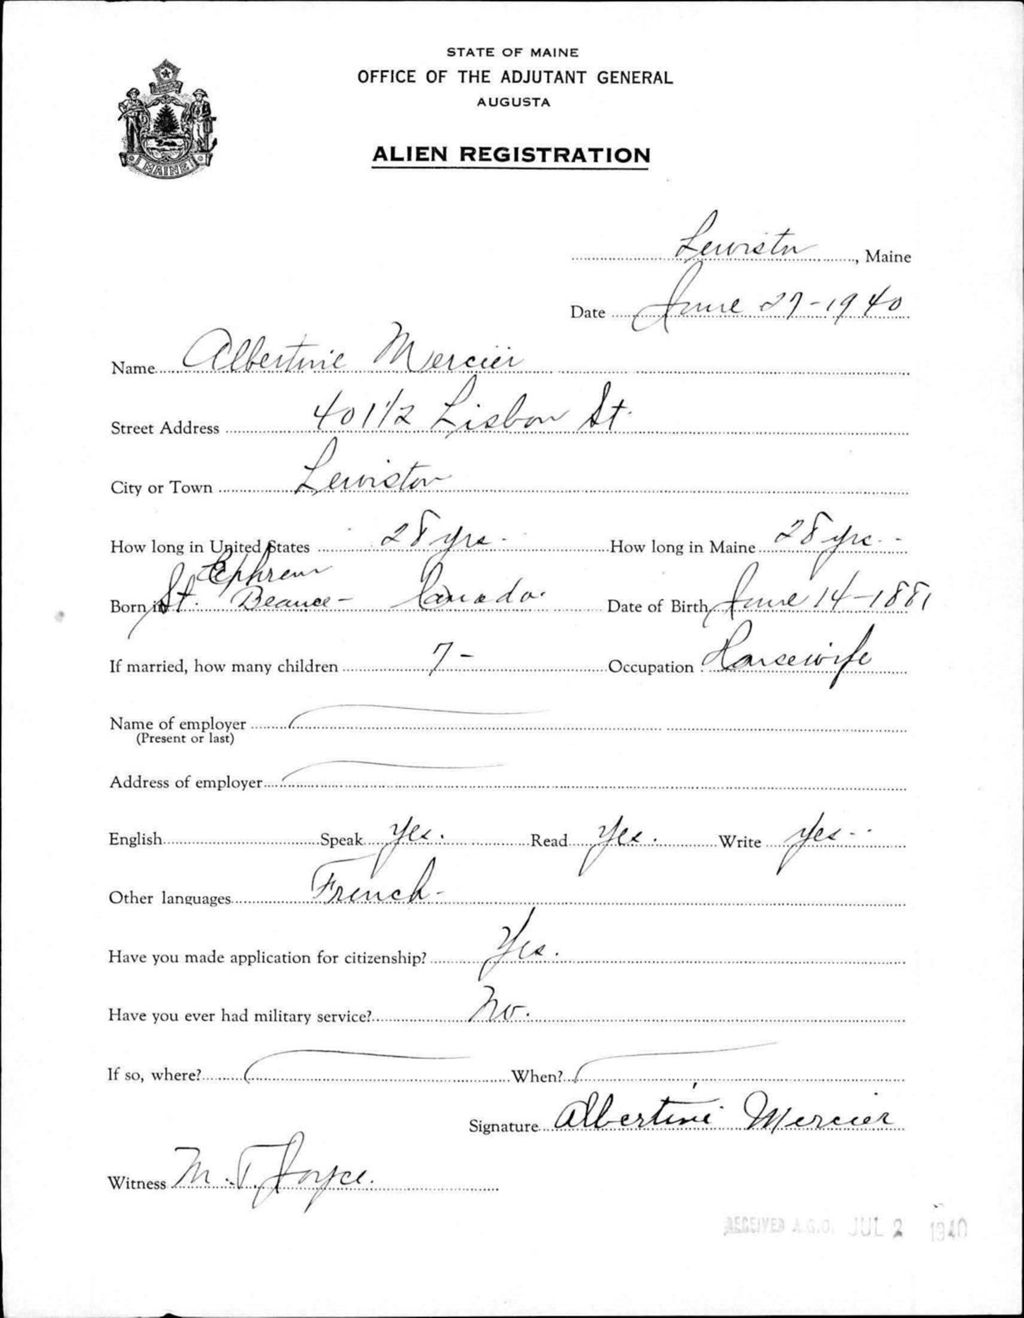 STATE OF MAINE
OFFICE OF THE ADJUTANT GENERAL
AUGUSTA
ALIEN REGISTRATION
MAINE
Lewiston, Maine
Date June 27-1940
Name Albertine Mercier
Street Address 401 1/2 Lisbon St.
City or Town Lewiston
How long in United States 28 yrs. How long in Maine 28 yrs.-
Ephrem
Born in St. Beauce- Canada. Date of Birth June 14-1881
If married, how many children 7- Occupation Housewife
Name of employer
(Present or last)
Address of employer
English Speak Yes. Read Yes. Write Yes--
Other languages French-
Have you made application for citizenship? Yes.
Have you ever had military service? No.
If so, where? When?
Signature Albertine Mercier
Witness M. T. Joyce.
RECEIVED A.G.O. JUL 2 1940